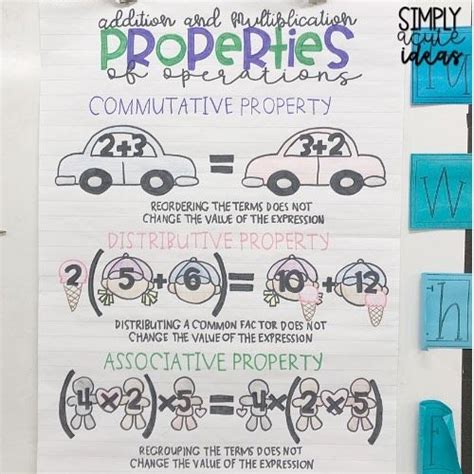 SIMPLY
acute
ideas
addition and Multiplication
PROPERTIES
of operations
COMMUTATIVE PROPERTY
2+3 = 3+2
REORDERING THE TERMS DOES NOT
CHANGE THE VALUE OF THE EXPRESSION
DISTRIBUTIVE PROPERTY
2(5+6) = 10+12
DISTRIBUTING A COMMON FACTOR DOES NOT
CHANGE THE VALUE OF THE EXPRESSION
ASSOCIATIVE PROPERTY
(4×2)×5=4×(2×5)
REGROUPING THE TERMS DOES NOT
CHANGE THE VALUE OF THE EXPRESSION
M
W
Th